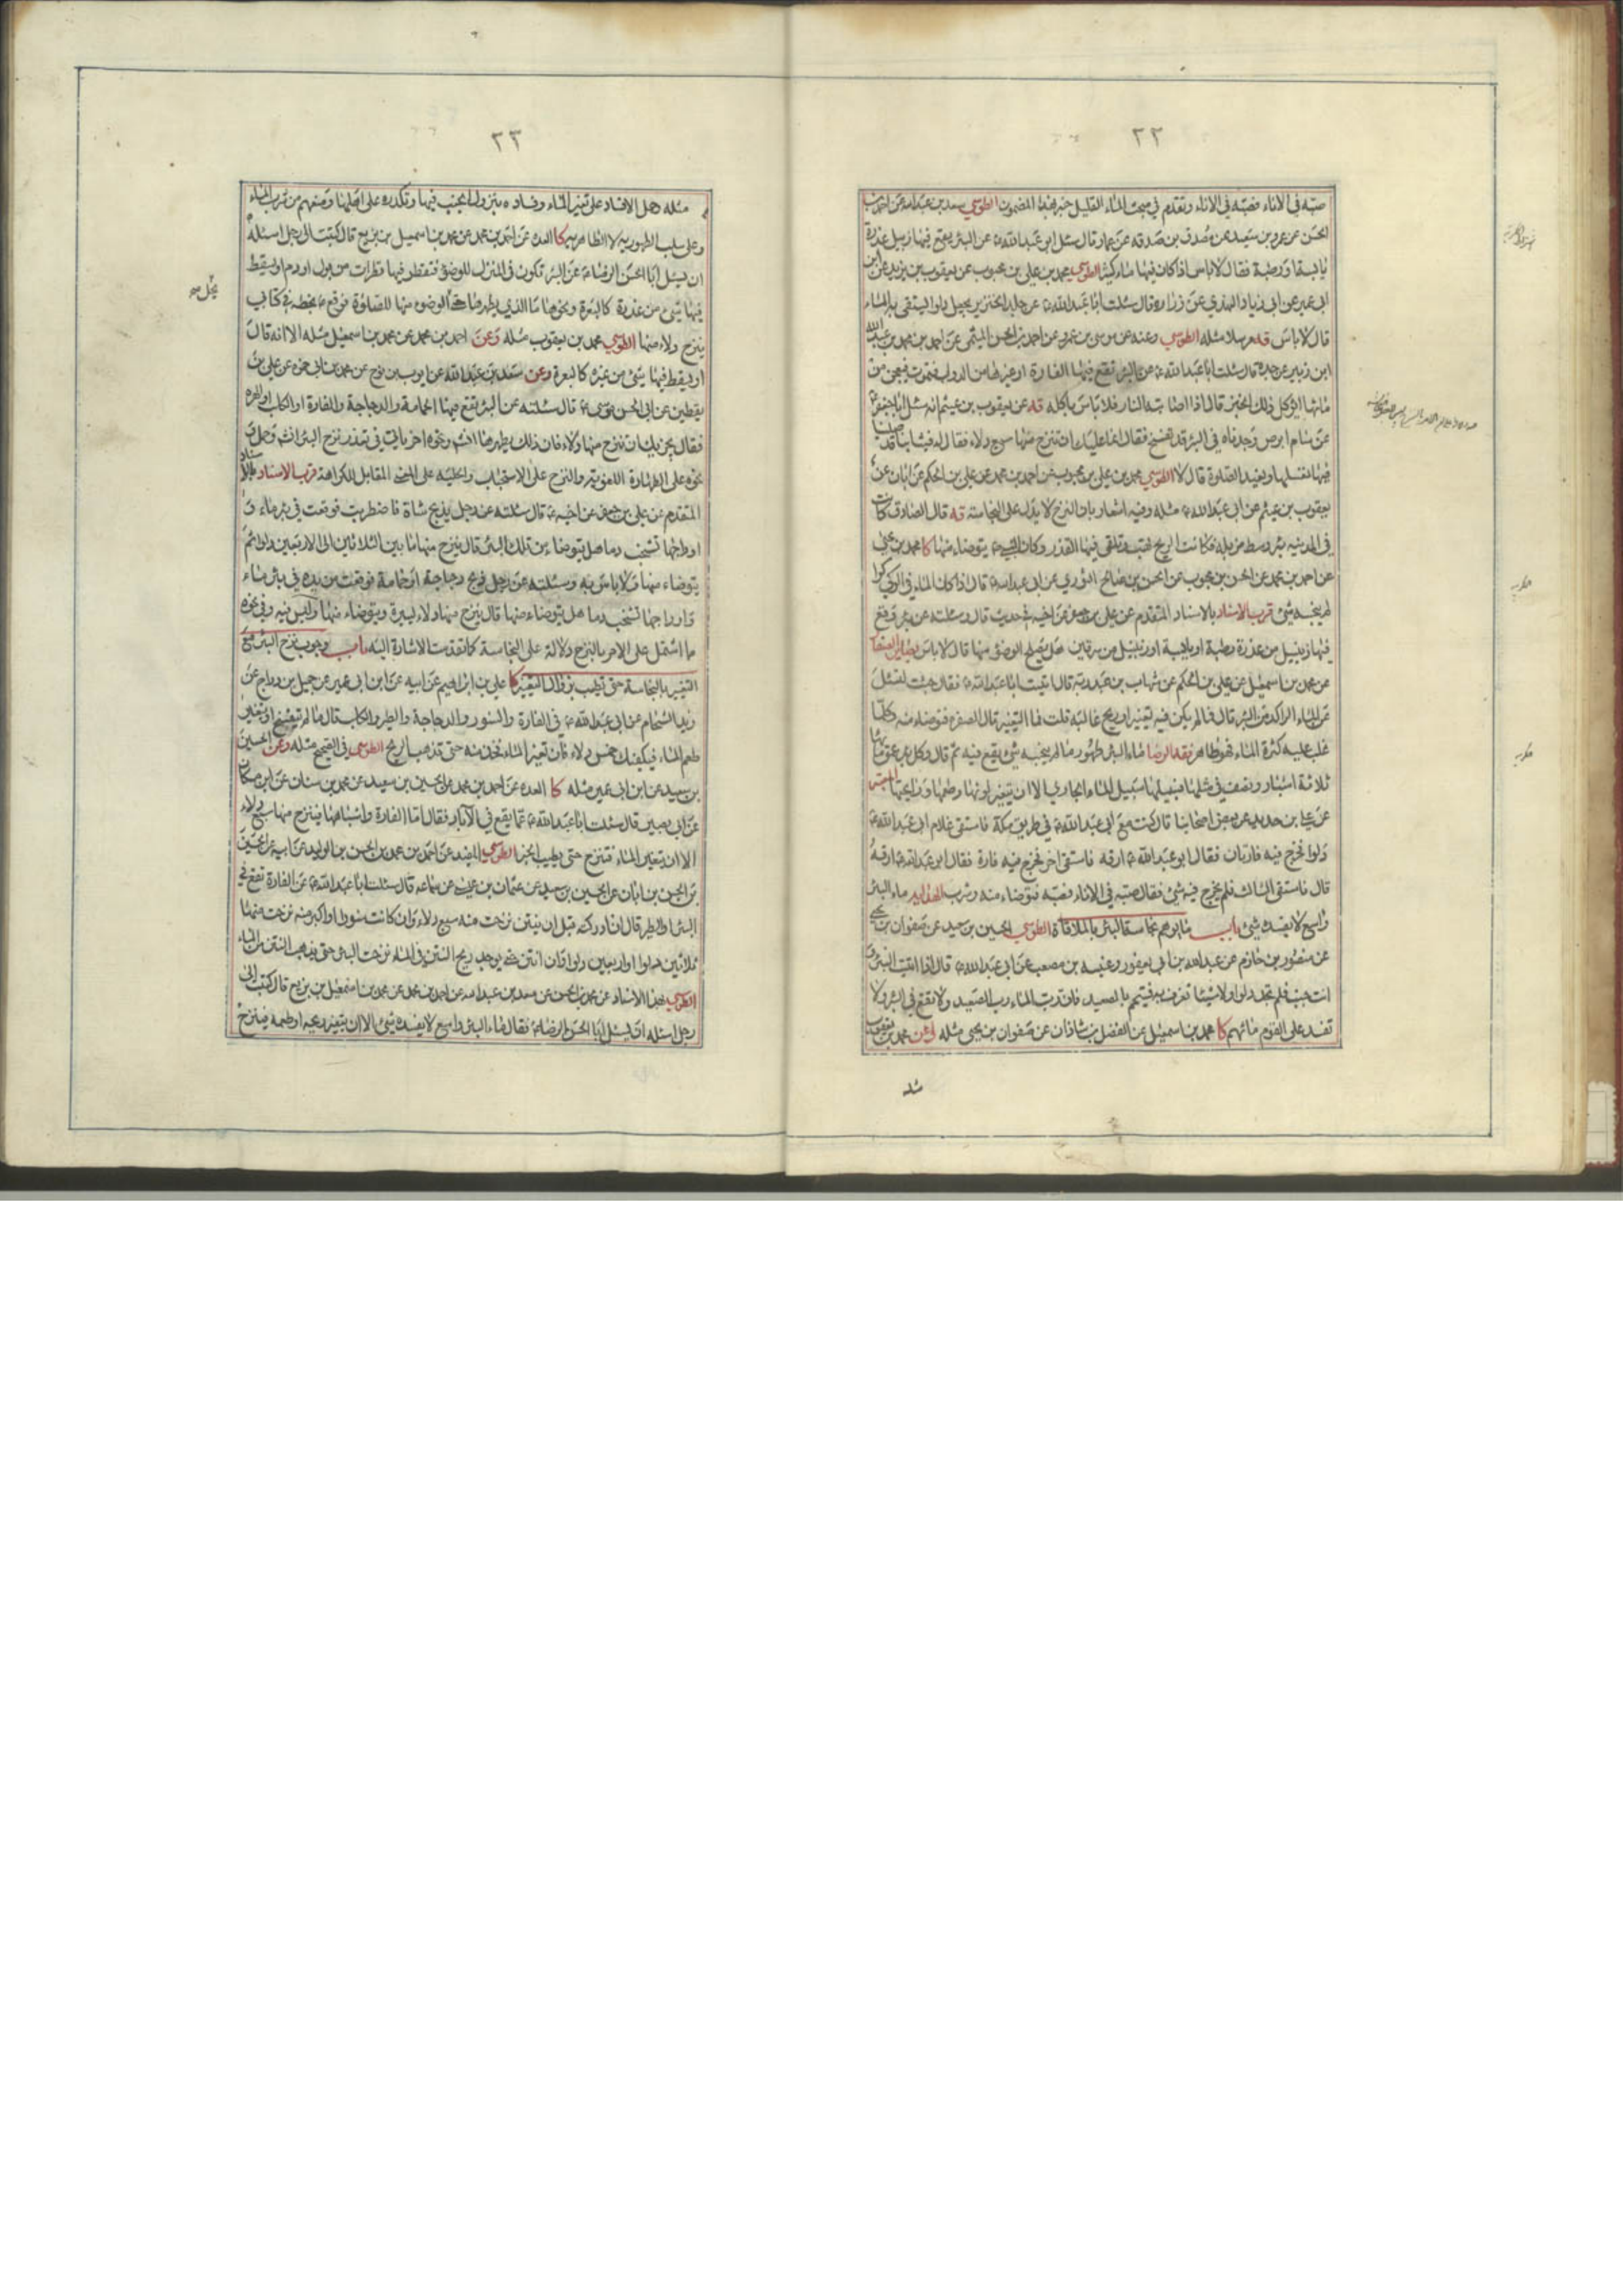 ٢٢
صبّه في الاناء فصبّه في الاناء وتقدم في مبحث الماء القليل خبر بهذا المضمون الطوسي سعد بن عبدالله عن احمد بن
الحسن عن عمرو بن سعيد عن مصدق بن صدقه عن عمار قال سئل ابو عبدالله ع عن البئر يقع فيها زبيل عذرة
يابسة او رطبة فقال لا باس اذا كان فيها ماء كثير الطوسي محمد بن علي بن محبوب عن يعقوب بن يزيد عن ابن
ابي عمير عن ابي زياد النهدي عن زراره قال سئلت ابا عبدالله ع عن جلد الخنزير يجعل دلوا يستقى به الماء
قال لا باس قه مرسلا مثله الطوسي وعنه عن موسى بن عمر عن احمد بن الحسن الميثمي عن احمد بن محمد بن عبدالله
ابن زبير عن جده قال سئلت ابا عبدالله ع عن البئر تقع فيها الفارة او غيرها من الدواب فتموت فيعجن من
مائها ايؤكل ذلك الخبز قال اذا اصابته النار فلا باس باكله قه عن يعقوب بن عيثم انه سئل ابا جعفر ع
عن سام ابرص وجدناه في البئر قد تفسخ فقال انما عليك ان تنزح منها سبع دلاء فقال له فثيابنا قد صلينا
فيها نغسلها ونعيد الصلوة قال لا الطوسي محمد بن علي بن محبوب عن احمد بن محمد عن علي بن الحكم عن ابان عن
يعقوب بن عيثم عن ابي عبدالله ع مثله وفيه اشعار بان النزح لا يدل على النجاسة قه قال الصادق ع كانت
في المدينه بئر وسط مزبله فكانت الريح تهب وتلقي فيها القذر وكان النبي ص يتوضاء منها كا محمد بن يحيى
عن احمد بن محمد عن الحسن بن محبوب عن الحسن بن صالح الثوري عن ابي عبدالله ع قال اذا كان الماء في الركي كرا
لم ينجسه شئ قرب الاسناد بالاسناد المتقدم عن علي بن جعفر عن اخيه في حديث قال وسئلته عن بئر وقع
فيها زنبيل من عذرة رطبة او يابسة او زنبيل من سرقين هل يصلح الوضوء منها قال لا باس بصائر الصفار
عن محمد بن اسمعيل عن علي بن الحكم عن شهاب بن عبد ربه قال اتيت ابا عبدالله ع فقال جئت لتسئل
عن الماء الراكد من البئر قال فما لم يكن فيه تغيير او ريح غالبة قلت فما التغيير قال الصفرة فتوضاء منه وكلما
غلب عليه كثرة الماء فهو طاهر فقه الرضا ماء البئر طهور ما لم ينجسه شئ يقع فيه ثم قال وكل بئر عمق مائها
ثلاثة اشبار ونصف في مثلها فسبيلها سبيل الماء الجاري الا ان يتغير لونها وطعمها ورايحتها
عن علي بن حديد عن بعض اصحابنا قال كنت مع ابي عبدالله ع في طريق مكة فاستقى غلام ابي عبدالله ع
دلوا فخرج فيه فارتان فقال ابو عبدالله ع ارقه فاستقى اخر فخرج فيه فارة فقال ابو عبدالله ع ارقه
قال فاستقى الثالث فلم يخرج فيه شئ فقال صبّه في الاناء فصبّه فتوضاء منه وشرب الهدايه ماء البئر
واسع لا يفسده شئ باب ما يوهم نجاسة البئر بالملاقاة الطوسي الحسين بن سعيد عن صفوان بن يحيى
عن منصور بن حازم عن عبدالله بن ابي يعفور وعنبسه بن مصعب عن ابي عبدالله ع قال اذا اتيت البئر و
انت جنب فلم تجد دلوا ولا شيئا تغرف به فتيمم بالصعيد فان رب الماء رب الصعيد ولا تقع في البئر ولا
تفسد على القوم مائهم كا محمد بن اسمعيل عن الفضل بن شاذان عن صفوان بن يحيى مثله وعن محمد بن يعقوب
مثله
٢٣
مثله وهل الافساد على تغير الماء وفساده بنزول الجنب فيها وتكدره على اهلها ومنعهم من شرب الماء
وعلى سلب الطهوريه لا الطاهريه كا العده عن احمد بن محمد عن محمد بن اسمعيل بن بزيع قال كتبت الى رجل اسئله
ان يسئل ابا الحسن الرضا ع عن البئر تكون في المنزل للوضوء فتقطر فيها قطرات من بول او دم او يسقط
فيها شئ من عذرة كالبعرة ونحوها ما الذي يطهرها حتى الوضوء منها للصلوة فوقع ع بخطه في كتابي
ينزح دلاء منها الطوسي محمد بن يعقوب مثله وعن احمد بن محمد عن محمد بن اسمعيل مثله الا انه قال
او يسقط فيها شئ من غيره كالبعرة وعن سعد بن عبدالله عن ايوب بن نوح عن محمد بن ابي حمزه عن علي بن
يقطين عن ابي الحسن موسى ع قال سئلته عن البئر تقع فيها الحمامة والدجاجة والفارة او الكلب او الهره
فقال يجزيك ان تنزح منها دلاء فان ذلك يطهرها انشم ونحوه اخر ياتي في تقدير نزح البئر انشم وحمل
نحوه على الطهارة اللغويه والنزح على الاستحباب والحليه على المعنى المقابل للكراهة قرب الاسناد بالاسناد
المتقدم عن علي بن جعفر عن اخيه ع قال سئلته عن رجل يذبح شاة فاضطربت فوقعت في بئر ماء و
اوداجها تشخب دما هل يتوضاء من تلك البئر قال ينزح منها ما بين الثلاثين الى الاربعين دلوا ثم
يتوضاء منها ولا باس به وسئلته عن رجل ذبح دجاجة او حمامة فوقعت من يده في بئر ماء
واوداجها تشخب دما هل يتوضاء منها قال ينزح منها دلاء يسيرة ويتوضاء منها وليس فيه وفي نحوه
ما اشتمل على الامر بالنزح دلالة على النجاسة كما تقدمت الاشارة اليه باب وجوب نزح البئر مع
التغير بالنجاسة حتى تطيب بزوال التغير كا علي بن ابراهيم عن ابيه عن ابن ابي عمير عن جميل بن دراج عن
زيد الشحام عن ابي عبدالله ع في الفارة والسنور والدجاجة والطير والكلب قال ما لم يتفسخ او يتغير
طعم الماء فيكفيك خمس دلاء فان تغير الماء فخذ منه حتى تذهب الريح الطوسي في الصحيح مثله وعن الحسين
بن سعيد عن ابن ابي عمير مثله كا العده عن احمد بن محمد عن الحسين بن سعيد عن محمد بن سنان عن ابن مسكان
عن ابي بصير قال سئلت ابا عبدالله ع عما يقع في الآبار فقال اما الفارة واشباهها فينزح منها سبع دلاء
الا ان يتغير الماء فتنزح حتى يطيب الخبر الطوسي المفيد عن احمد بن محمد بن الحسن بن الوليد عن ابيه عن الحسين
بن الحسن بن ابان عن الحسين بن سعيد عن عثمان بن عيسى عن سماعه قال سئلت ابا عبدالله ع عن الفارة تقع في
البئر او الطير قال ان ادركته قبل ان ينتن نزحت منه سبع دلاء وان كانت سنورا او اكبر منه نزحت منها
ثلاثين دلوا او اربعين دلوا وان انتن حتى يوجد ريح النتن في الماء نزحت البئر حتى يذهب النتن من الماء
الطوسي بهذا الاسناد عن محمد بن الحسن عن سعد بن عبدالله عن احمد بن محمد عن محمد بن اسمعيل بن بزيع قال كتبت الى
رجل اسئله ان يسئل ابا الحسن الرضا ع فقال ماء البئر واسع لا يفسده شئ الا ان يتغير ريحه او طعمه فينزح